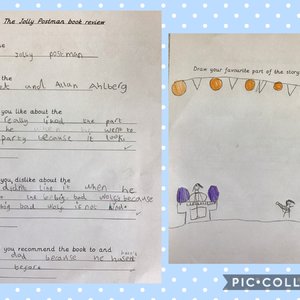 The Jolly Postman book review
Jolly postman
the
and Allan Ahlberg
you like about the
really liked the part
he when he went to
party because it looks
you dislike about the
didnt like it when he
to the big bad wolfs because
big bad wolf is not kinde
you recommend the book to and
dad because he
before
Draw your favourite part of the story
PIC•COLL